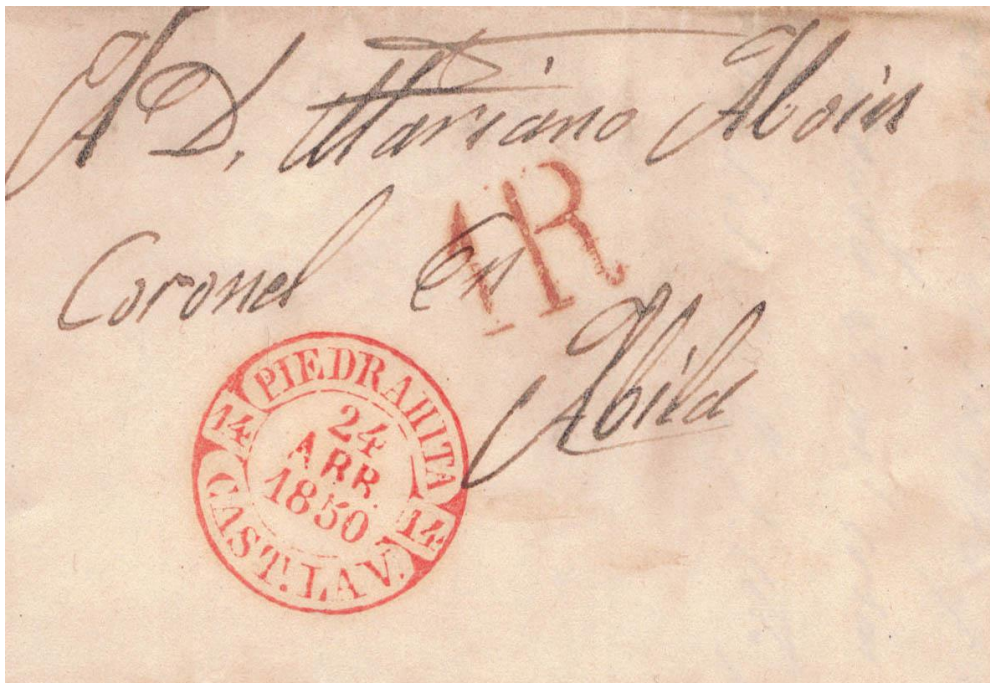 A D. Mariano Aboin
1R
Coronel en
Abila
PIEDRAHITA
14 24 14
ABR.
1850
CAST. LA V.